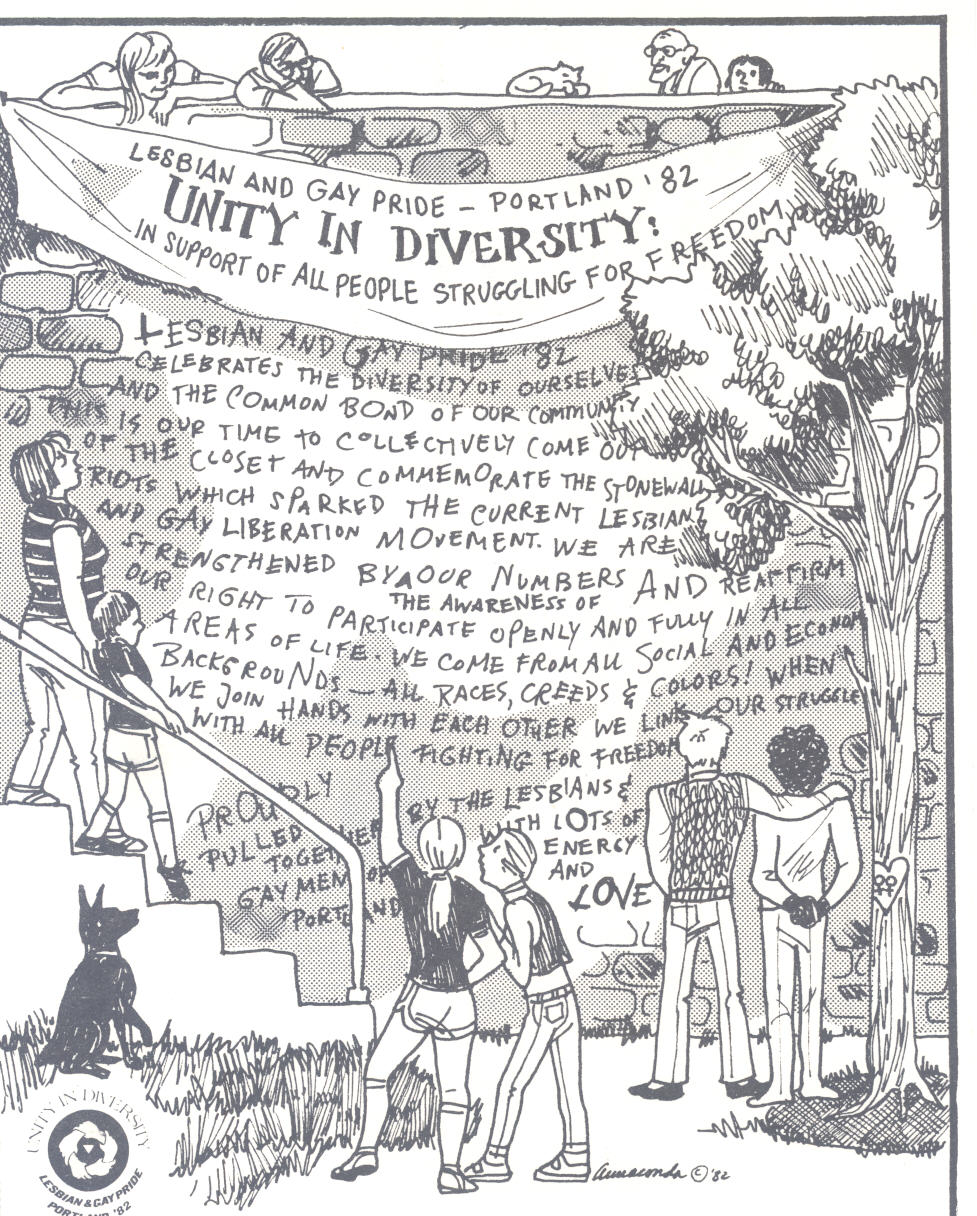 LESBIAN AND GAY PRIDE - PORTLAND '82
UNITY IN DIVERSITY:
IN SUPPORT OF ALL PEOPLE STRUGGLING FOR FREEDOM
LESBIAN AND GAY PRIDE '82
CELEBRATES THE DIVERSITY OF OURSELVES
AND THE COMMON BOND OF OUR COMMUNITY
THIS IS OUR TIME TO COLLECTIVELY COME OUT
OF THE CLOSET AND COMMEMORATE THE STONEWALL
RIOTS WHICH SPARKED THE CURRENT LESBIAN
AND GAY LIBERATION MOVEMENT. WE ARE
STRENGTHENED BY OUR NUMBERS AND REAFFIRM
THE AWARENESS OF
OUR RIGHT TO PARTICIPATE OPENLY AND FULLY IN ALL
AREAS OF LIFE. WE COME FROM ALL SOCIAL AND ECONOM
BACKGROUNDS — ALL RACES, CREEDS & COLORS! WHEN
WE JOIN HANDS WITH EACH OTHER WE LINK OUR STRUGGLE
WITH ALL PEOPLE FIGHTING FOR FREEDOM
PROUDLY
PULLED TOGETHER BY THE LESBIANS &
GAY MEN OF PORTLAND
WITH LOTS OF
ENERGY
AND
LOVE
annaconda © '82
UNITY IN DIVERSITY
LESBIAN & GAY PRIDE
PORTLAND '82